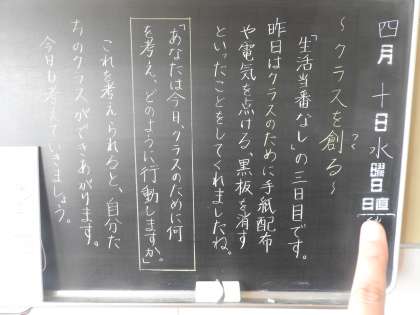 四月十日水曜日
日直
～クラスを創る～
つく
「生活当番なし」の三日目です。
昨日はクラスのために手紙配布
や電気を点ける、黒板を消す
といったことをしてくれましたね。
「あなたは今日、クラスのために何
を考え、どのように行動しますか。」
これを考えられると、自分た
ちのクラスができあがります。
今日も考えていきましょう。